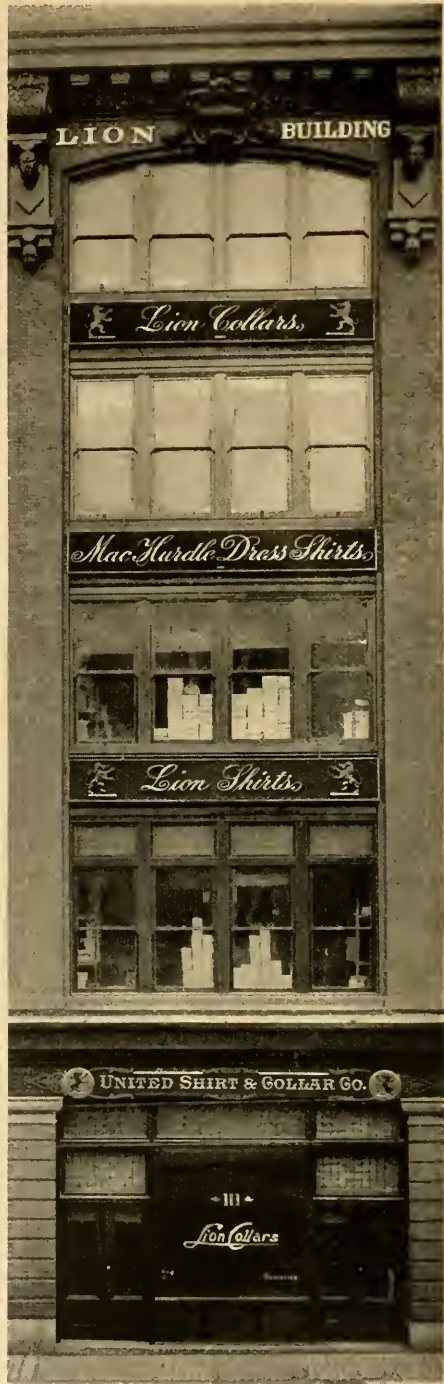 LION BUILDING
Lion Collars
Mac Hurdle Dress Shirts
Lion Shirts
UNITED SHIRT & COLLAR CO.
111
Lion Collars